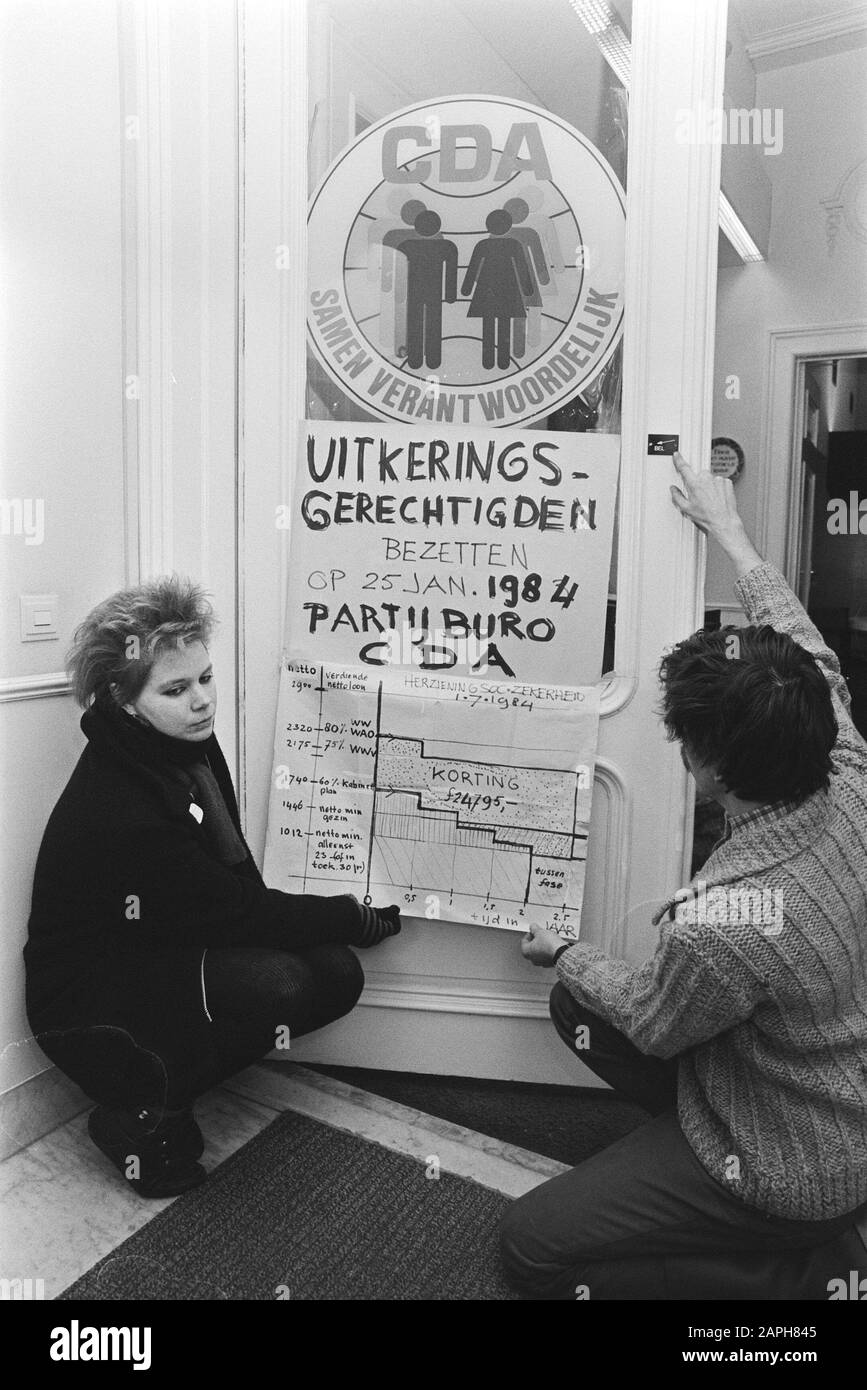 CDA
SAMEN VERANTWOORDELIJK
UITKERINGS-
GERECHTIGDEN
BEZETTEN
OP 25 JAN. 1984
PARTIJBURO
CDA
BEL
netto
verdiende
nettoloon
HERZIENING SOC. ZEKERHEID
1.7.1984
2900
2320 80% WW
WAO
2175 75% WWV
KORTING
f24/95,-
1740 60% kabinet
plan
1446 netto min
gezin
1012 netto min.
alleenst
tussen
fase
0 0,5 1 1,5 2 2,5
tijd in JAAR
alamy
Image ID: 2APH845
www.alamy.com